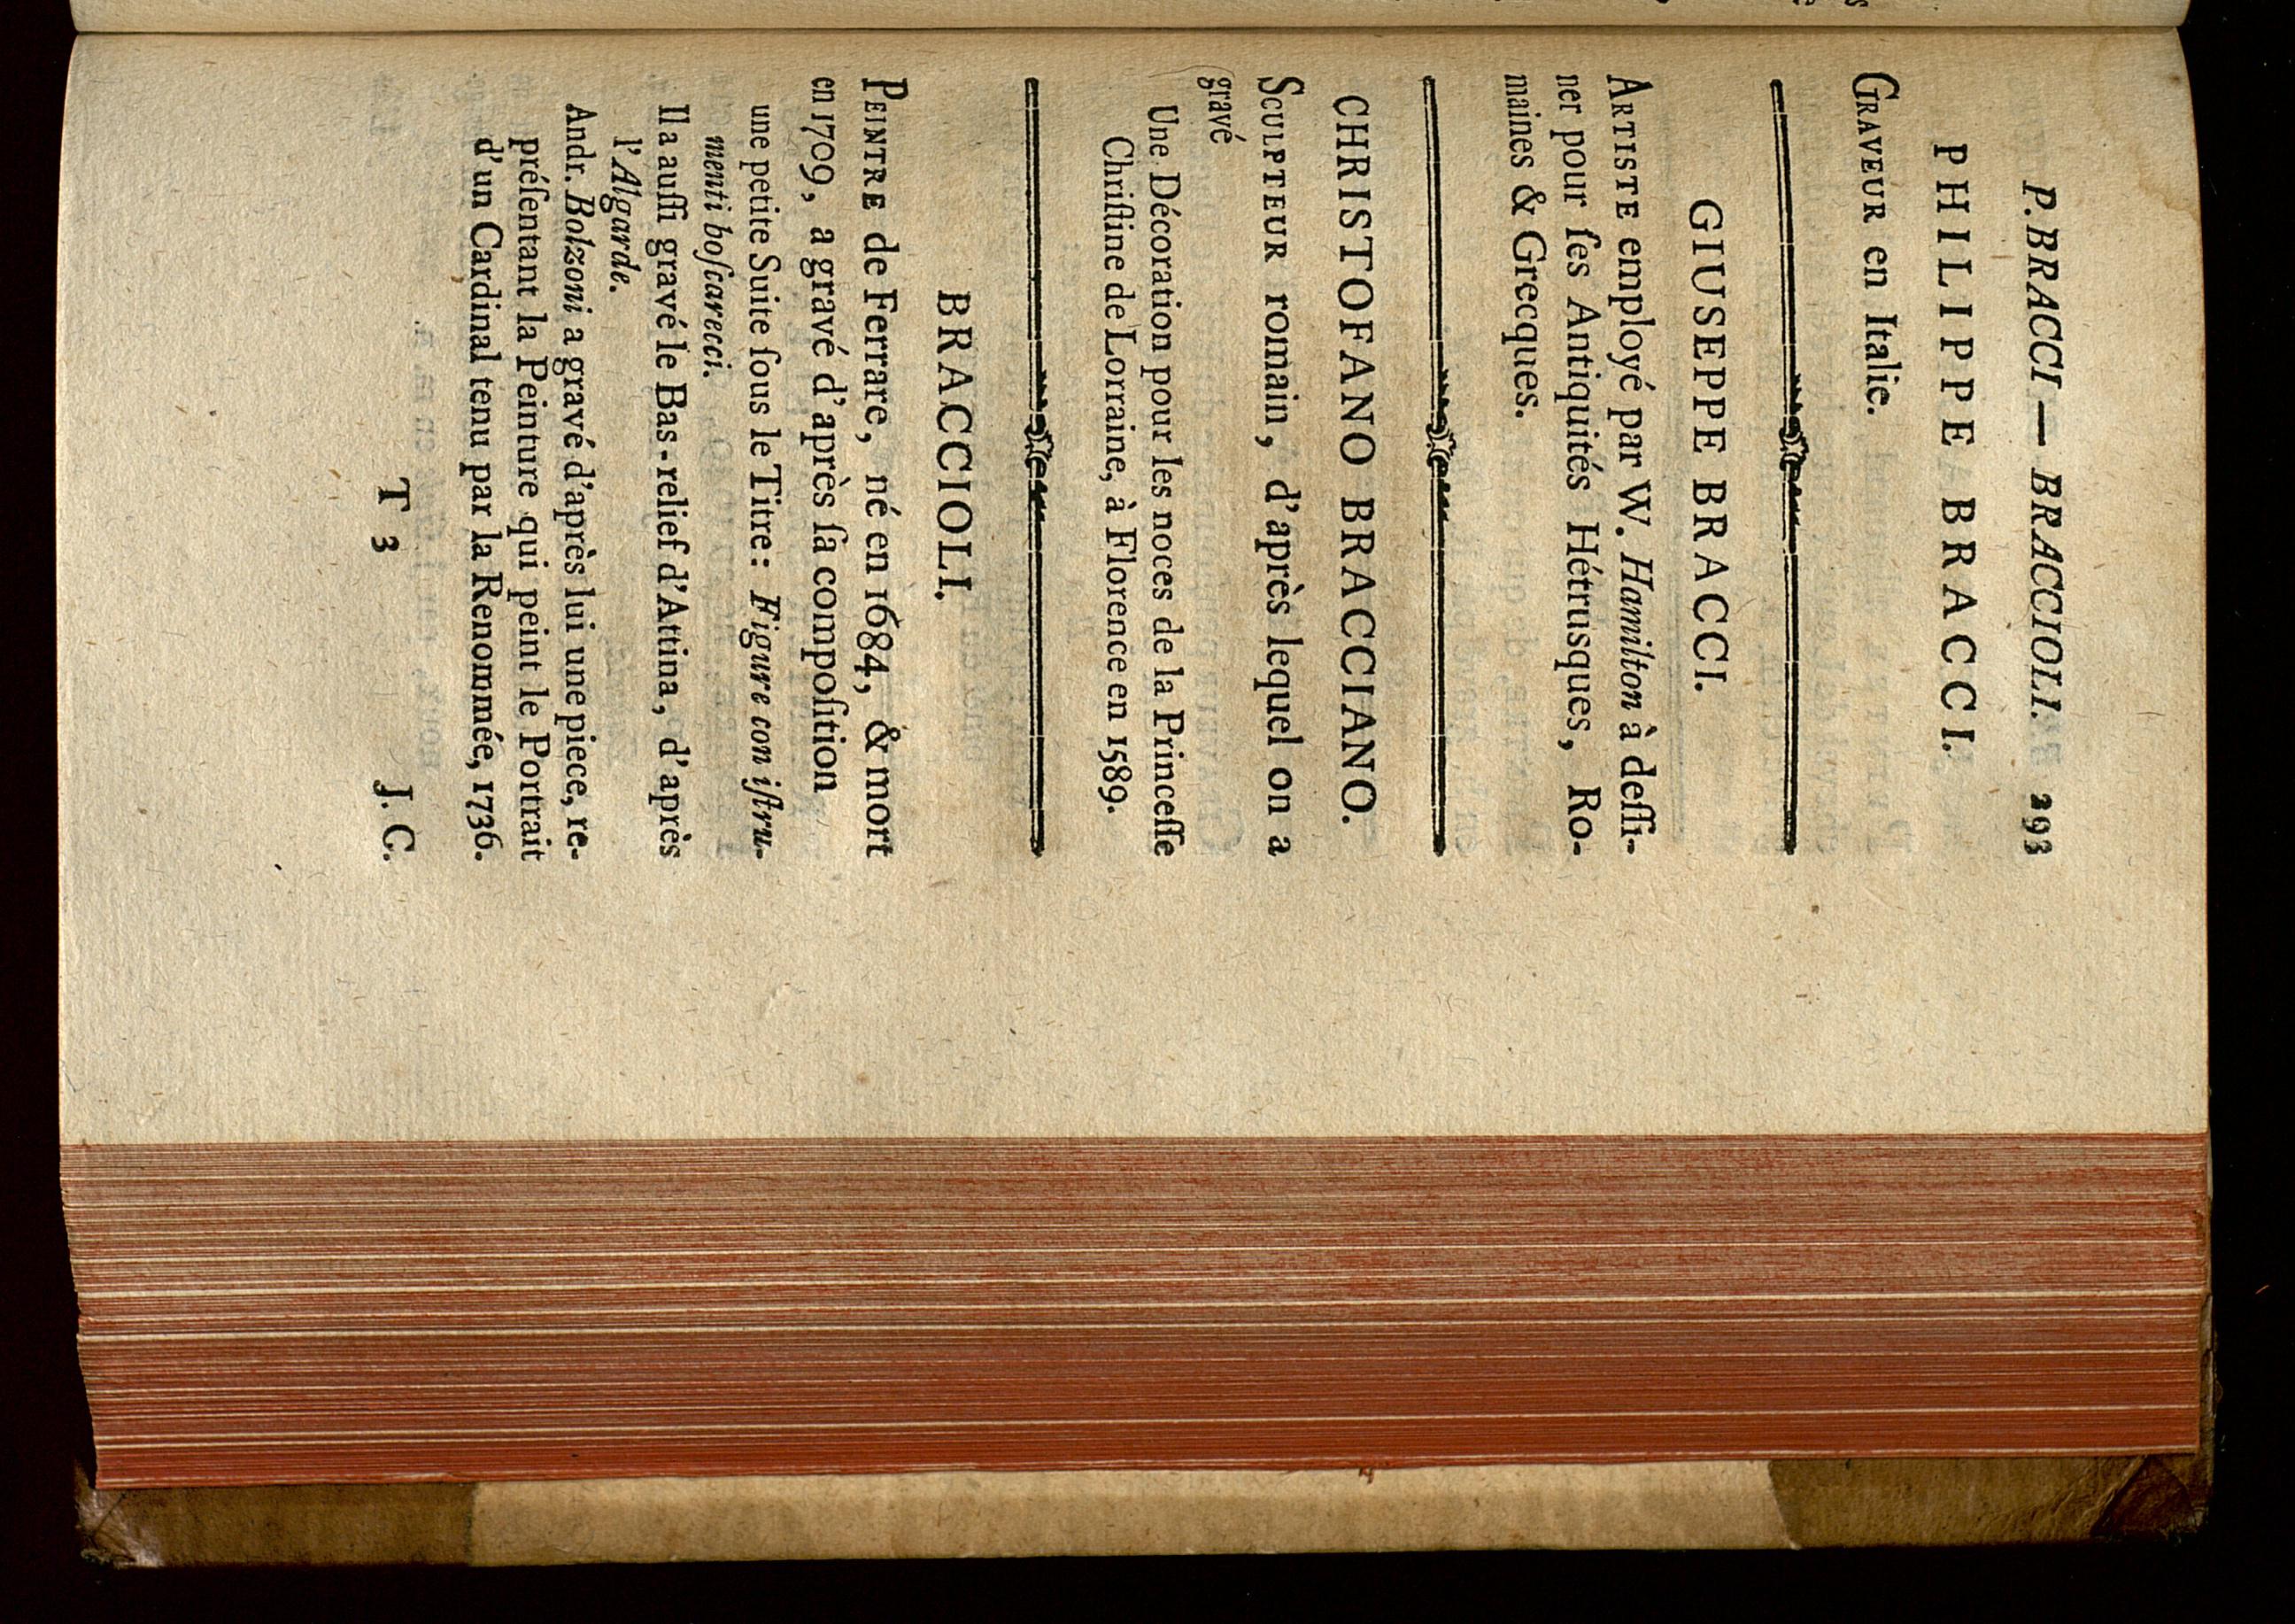 P. BRACCI — BRACCIOLI. 293
PHILIPPE BRACCI.
GRAVEUR en Italie.
GIUSEPPE BRACCI.
ARTISTE employé par W. Hamilton à deſſi-
ner pour ſes Antiquités Hétrusques, Ro-
maines & Grecques.
CHRISTOFANO BRACCIANO.
SCULPTEUR romain, d'après lequel on a
gravé
Une Décoration pour les noces de la Princeſſe
Chriſtine de Lorraine, à Florence en 1589.
BRACCIOLI.
PEINTRE de Ferrare, né en 1684, & mort
en 1709, a gravé d'après ſa compoſition
une petite Suite ſous le Titre: Figure con iſtru-
menti boſcarecci.
Il a auſſi gravé le Bas-relief d'Attina, d'après
l'Algarde.
Andr. Bolzoni a gravé d'après lui une piece, re-
préſentant la Peinture qui peint le Portrait
d'un Cardinal tenu par la Renommée, 1736.
T 3 J. C.